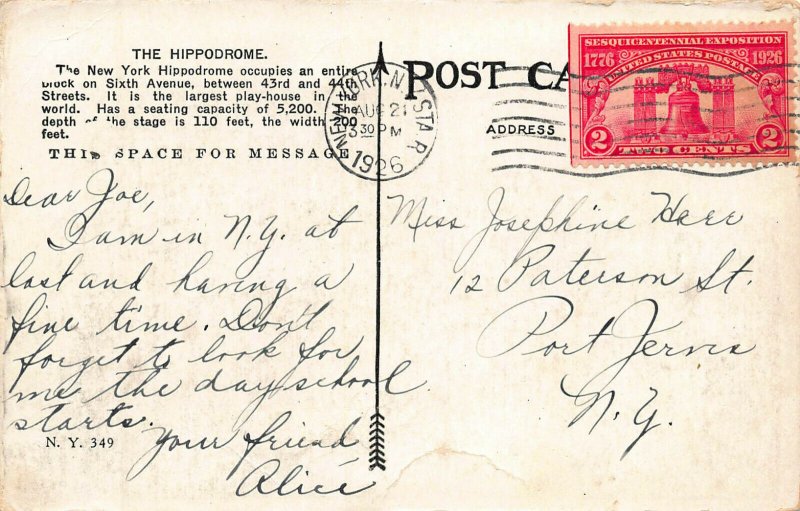 THE HIPPODROME.
The New York Hippodrome occupies an entire
block on Sixth Avenue, between 43rd and 44th
Streets. It is the largest play-house in the
world. Has a seating capacity of 5,200. The
depth of the stage is 110 feet, the width 200
feet.
THIS SPACE FOR MESSAGE
Dear Joe,
I am in N.Y. at
last and having a
fine time. Don't
forget to look for
me the day school
starts.
Your friend
Alice
N. Y. 349
POST CA
ADDRESS
NEW YORK, N.Y. STA. R
AUG 21
3 30 PM
1926
SESQUICENTENNIAL EXPOSITION
1776 UNITED STATES POSTAGE 1926
2 TWO CENTS 2
Miss Josephine Harr
12 Paterson St.
Port Jervis
N.Y.